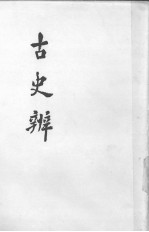 古史辨